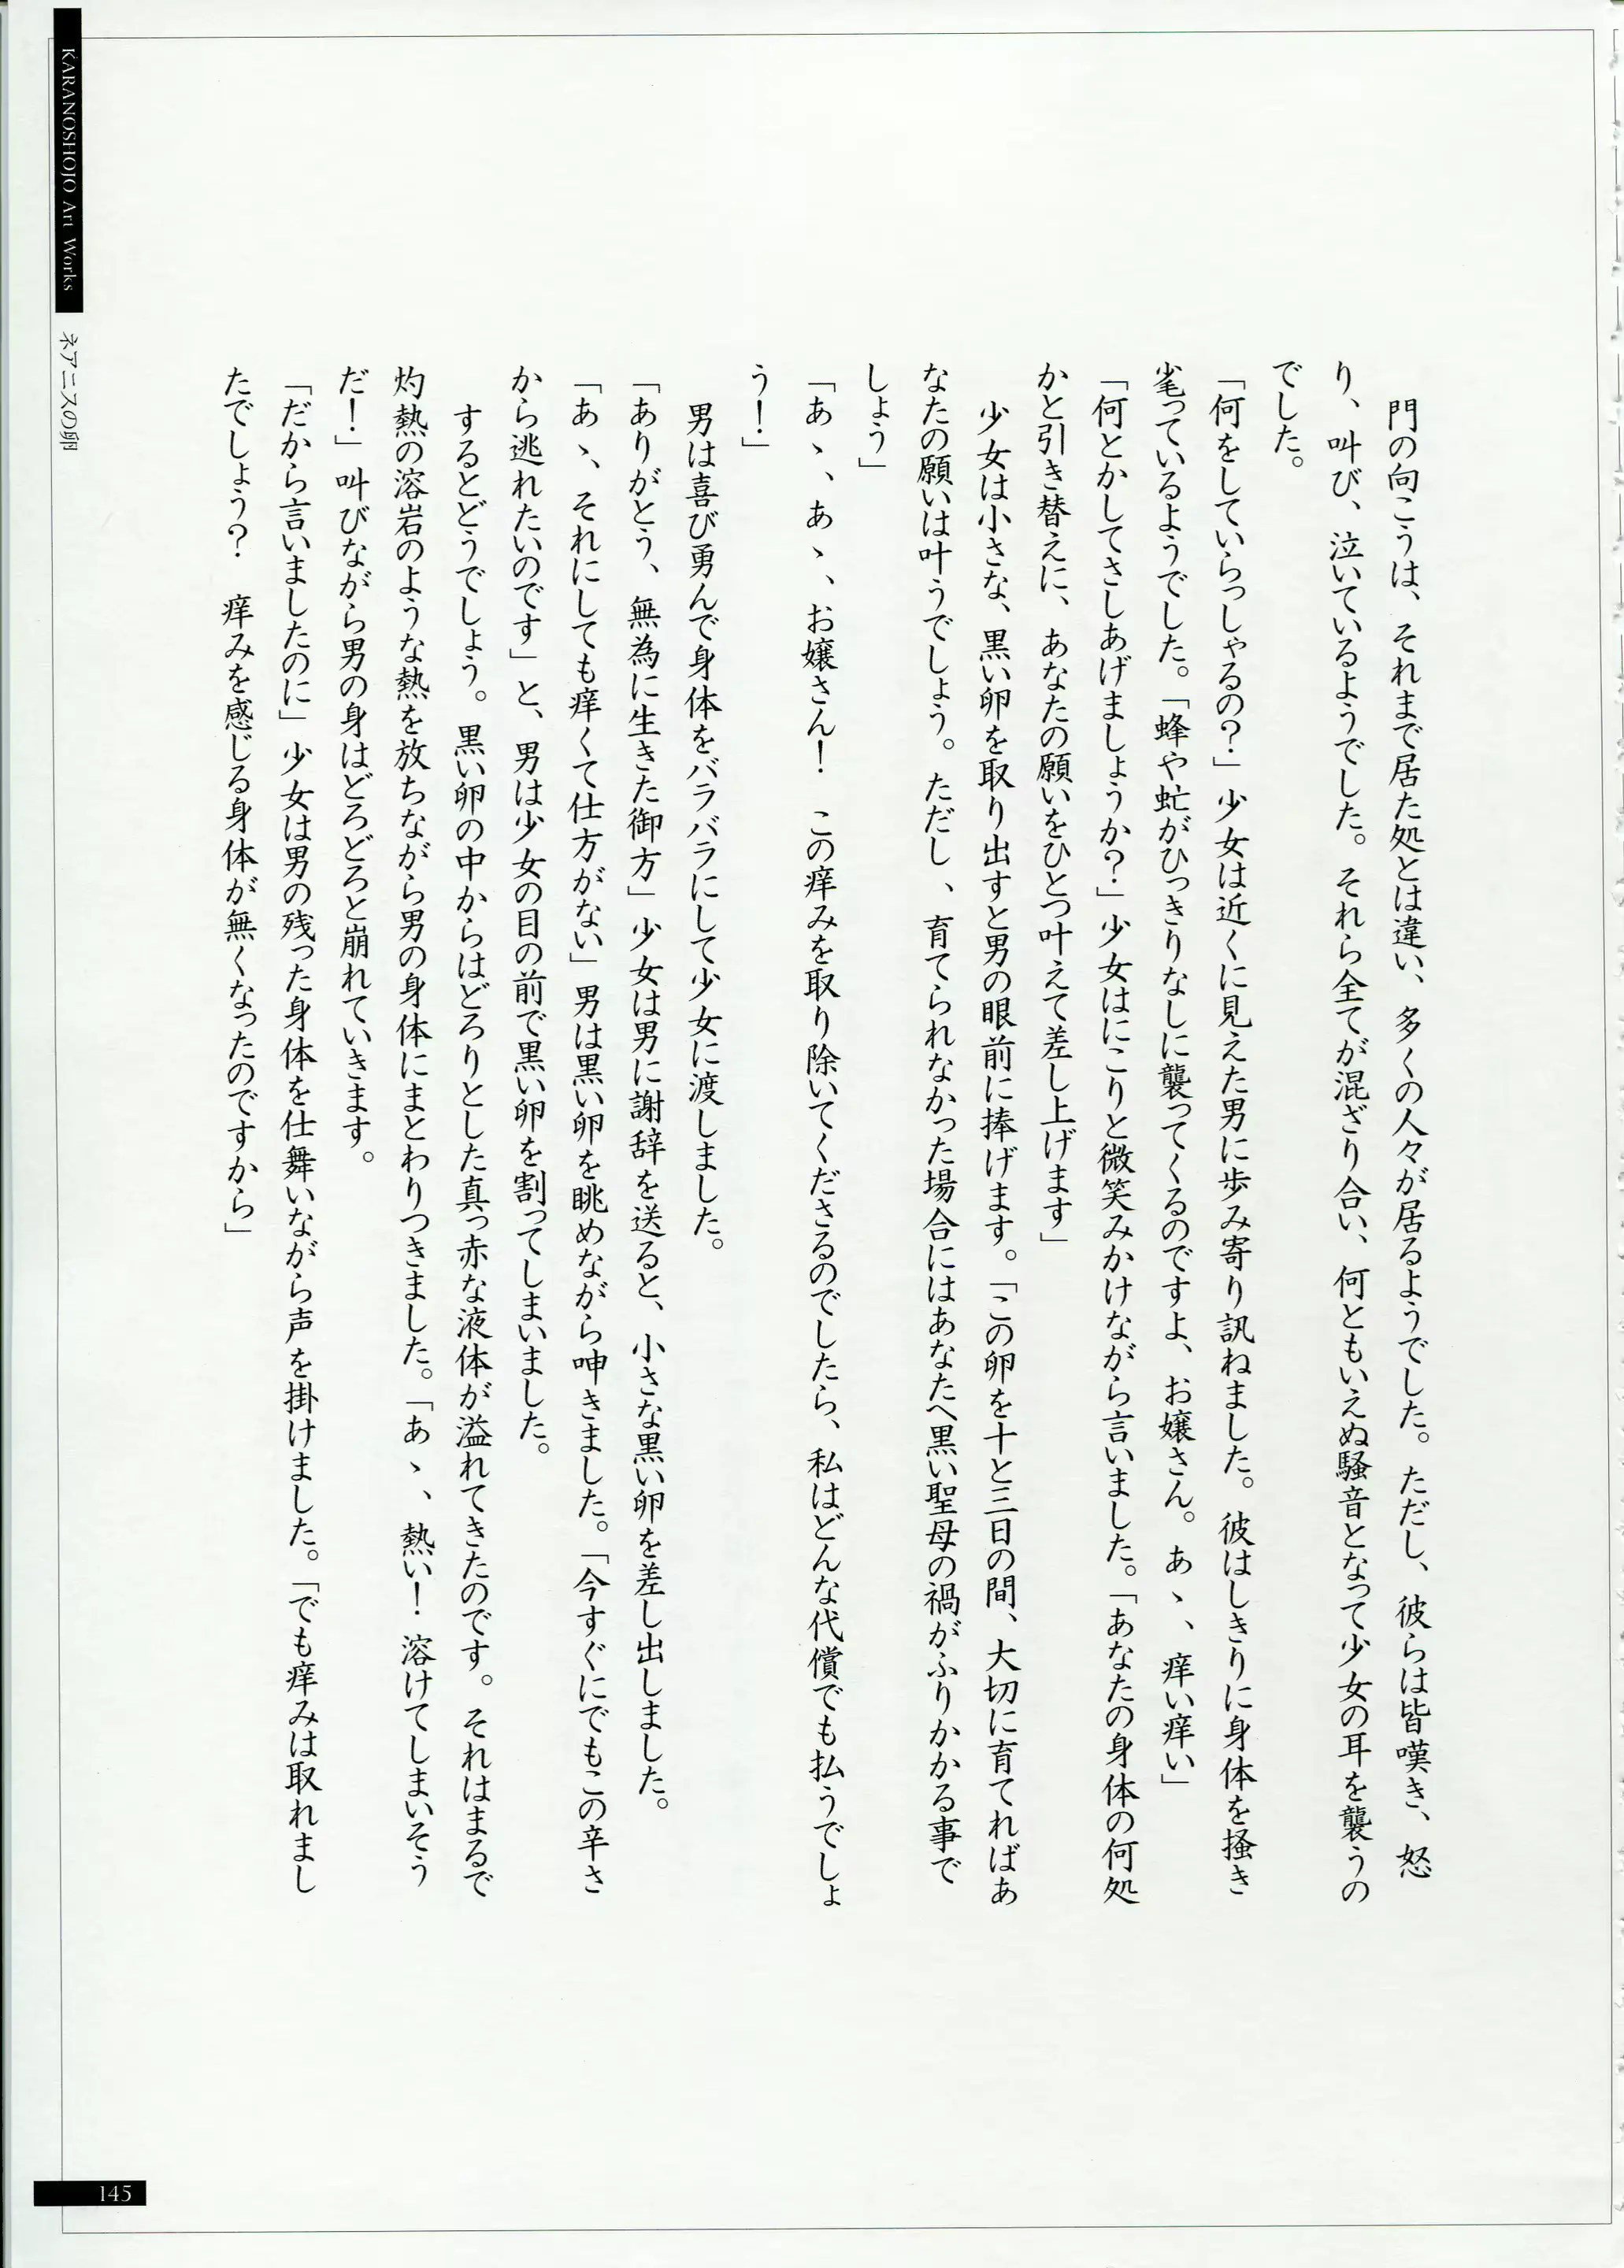 門の向こうは、それまで居た処とは違い、多くの人々が居るようでした。ただし、彼らは皆嘆き、怒
り、叫び、泣いているようでした。それら全てが混ざり合い、何ともいえぬ騒音となって少女の耳を襲うの
でした。
「何をしていらっしゃるの？」少女は近くに見えた男に歩み寄り訊ねました。彼はしきりに身体を掻き
毟っているようでした。「蜂や虻がひっきりなしに襲ってくるのですよ、お嬢さん。あゝ、痒い痒い」
「何とかしてさしあげましょうか？」少女はにこりと微笑みかけながら言いました。「あなたの身体の何処
かと引き替えに、あなたの願いをひとつ叶えて差し上げます」
少女は小さな、黒い卵を取り出すと男の眼前に捧げます。「この卵を十と三日の間、大切に育てればあ
なたの願いは叶うでしょう。ただし、育てられなかった場合にはあなたへ黒い聖母の禍がふりかかる事で
しょう」
「あゝ、あゝ、お嬢さん！　この痒みを取り除いてくださるのでしたら、私はどんな代償でも払うでしょ
う！」
男は喜び勇んで身体をバラバラにして少女に渡しました。
「ありがとう、無為に生きた御方」少女は男に謝辞を送ると、小さな黒い卵を差し出しました。
「あゝ、それにしても痒くて仕方がない」男は黒い卵を眺めながら呻きました。「今すぐにでもこの辛さ
から逃れたいのです」と、男は少女の目の前で黒い卵を割ってしまいました。
するとどうでしょう。黒い卵の中からはどろりとした真っ赤な液体が溢れてきたのです。それはまるで
灼熱の溶岩のような熱を放ちながら男の身体にまとわりつきました。「あゝ、熱い！溶けてしまいそう
だ！」叫びながら男の身はどろどろと崩れていきます。
「だから言いましたのに」少女は男の残った身体を仕舞いながら声を掛けました。「でも痒みは取れまし
たでしょう？　痒みを感じる身体が無くなったのですから」
KARANOSHOJO Art Works
ネアニスの卵
145